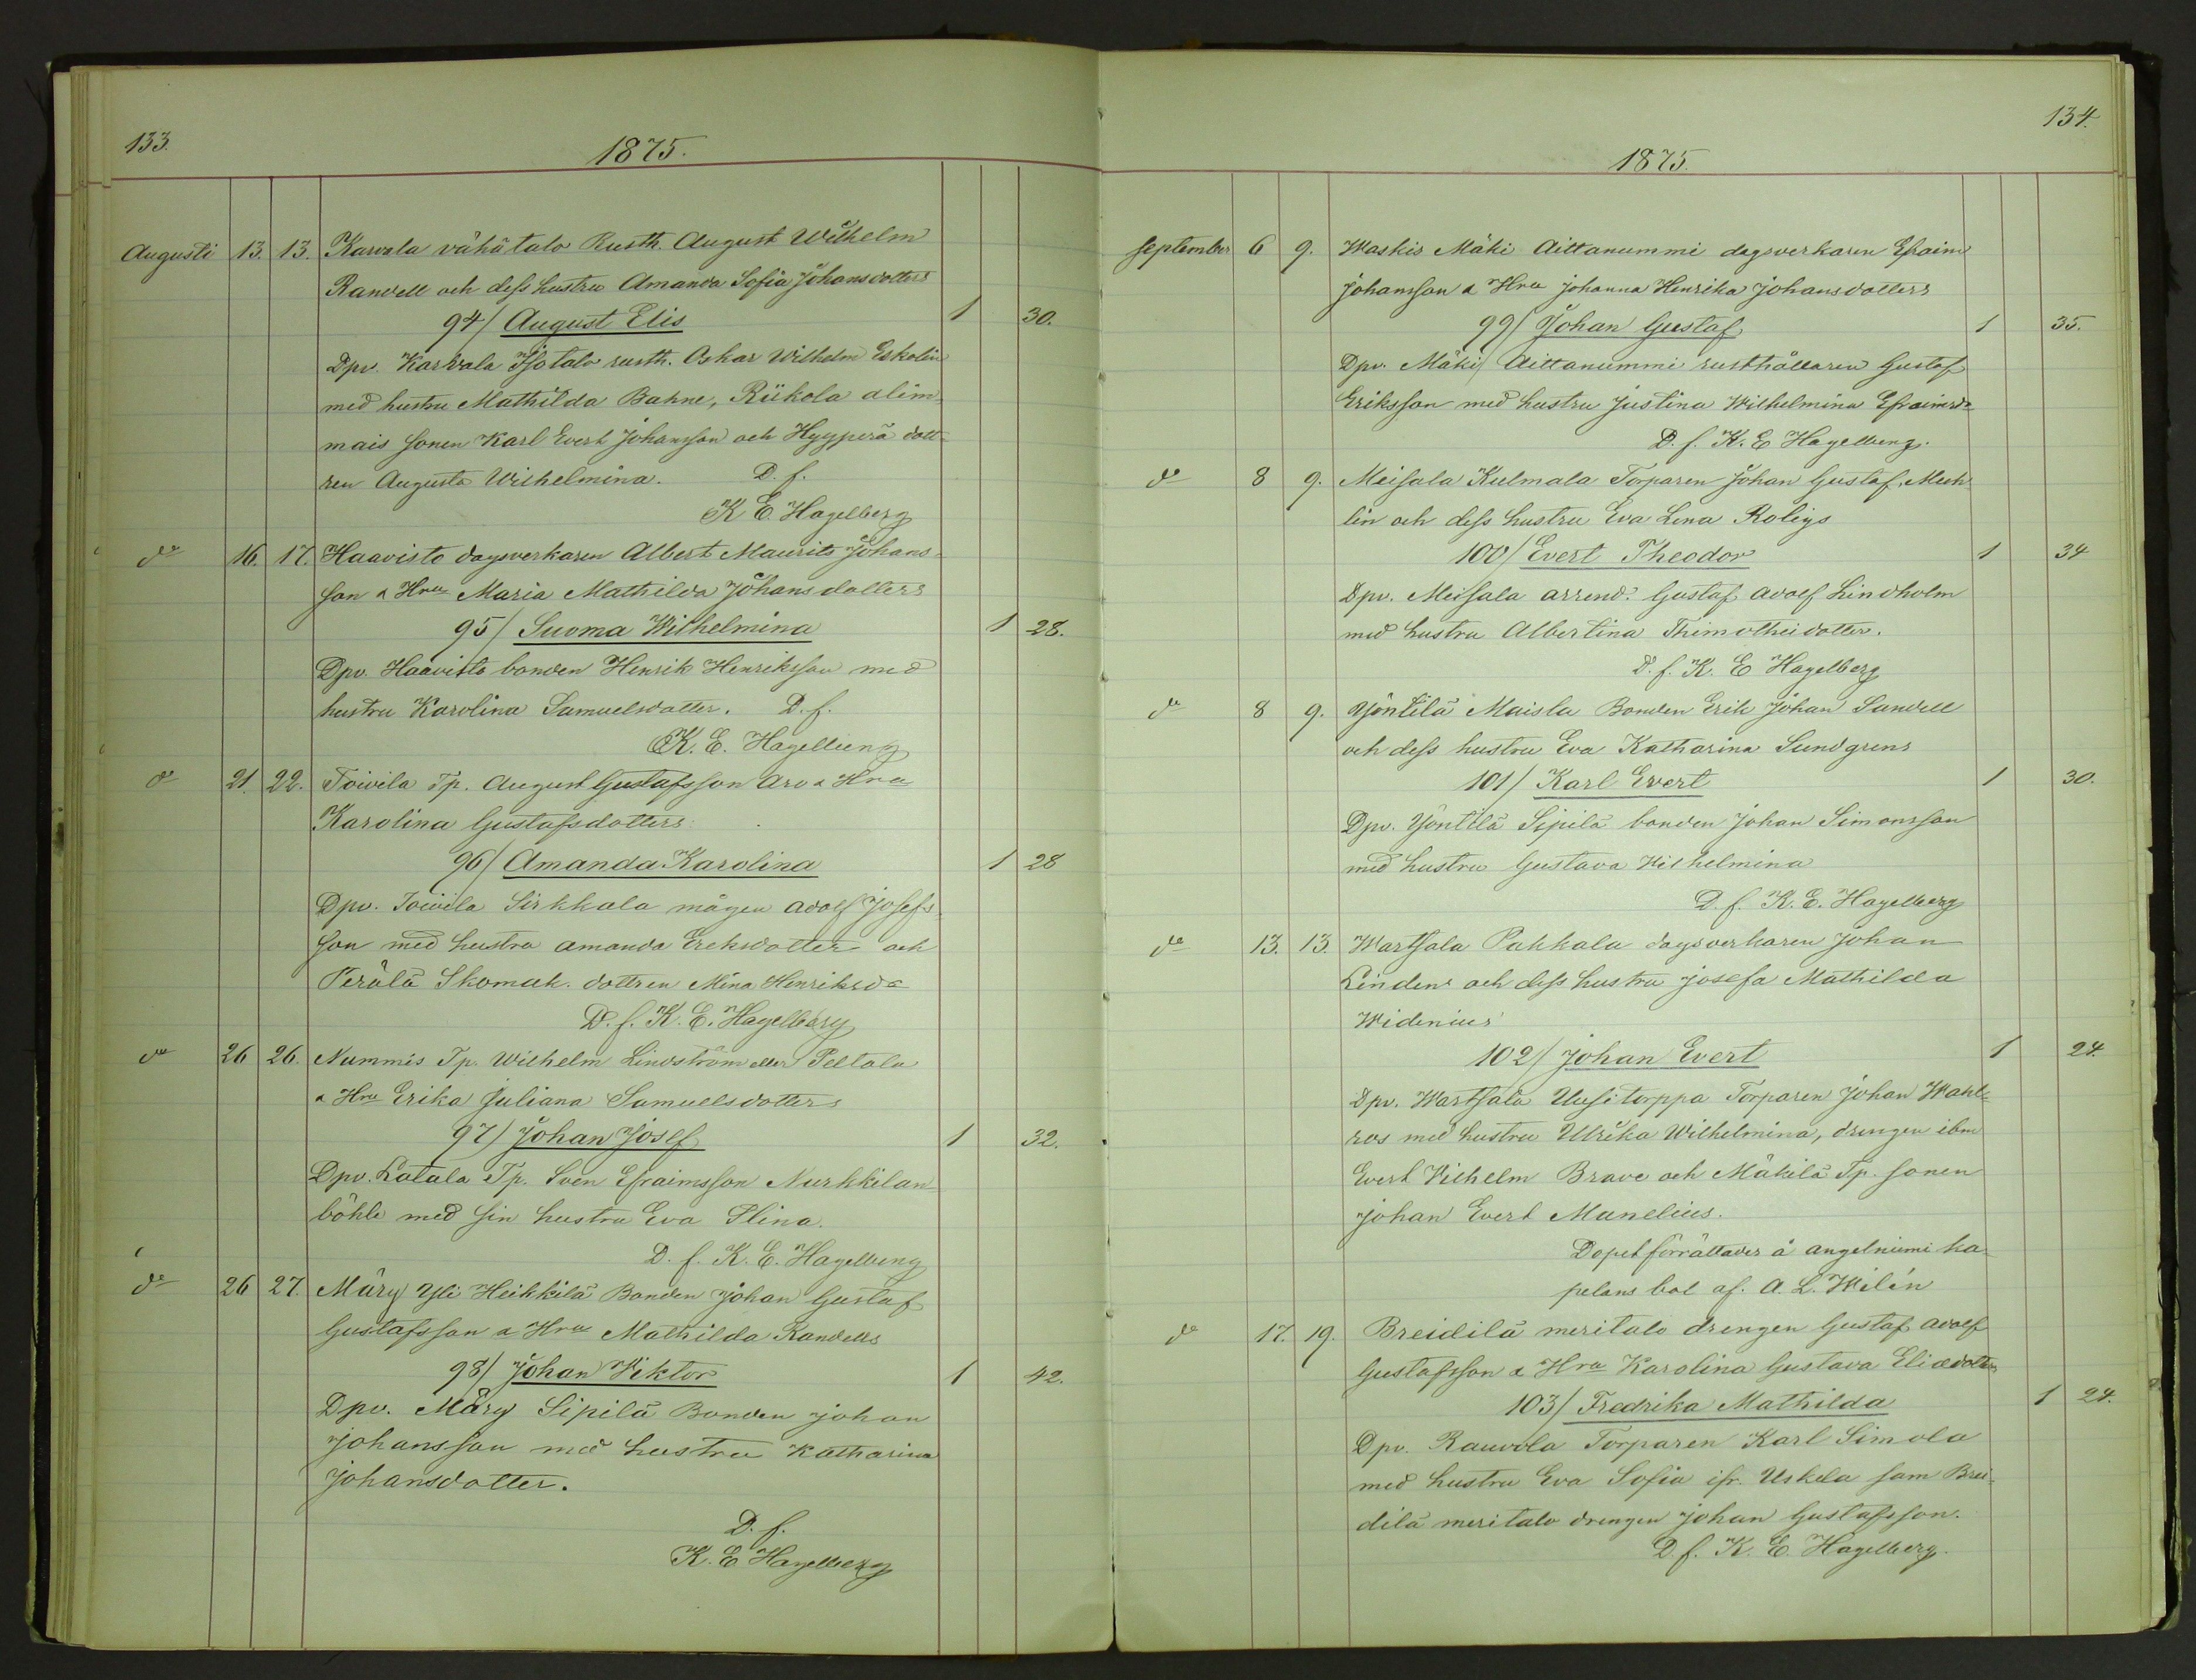 133.
1875.
Augusti 13. 13. Karvala vähätalo Rusth. August Wilhelm
Randell och dess hustru Amanda Sofia Johansdotters
94/ August Elis 1 30.
Dpv. Karvala Isotalo rusth. Oskar Wilhelm Eskolin
med hustru Mathilda Bahne, Riikola alim-
mais sonen Karl Evert Johansson och Hyyperä dott-
ren Augusta Wilhelmina. D. f.
K. E. Hagelberg
do 16. 17. Haavisto dagsverkaren Albert Maurits Johans-
son & Hru Maria Mathilda Johansdotters
95/ Suoma Wilhelmina 1 28.
Dpv. Haavisto bonden Henrik Henriksson med
hustru Karolina Samuelsdotter. D. f.
K. E. Hagelberg
do 21. 22. Toivila Tp. August Gustafsson Aro & Hru
Karolina Gustafsdotters
96/ Amanda Karolina 1 28
Dpv. Toivila Sirkkala mågen Adolf Josefs-
son med hustru Amanda Eriksdotter och
Perälä Skomak. dottren Mina Henriksdr
D. f. K. E. Hagelberg
do 26 26. Nummis Tp. Wilhelm Lindström eller Peltala
& Hru Erika Juliana Samuelsdotters
97/ Johan Josef 1 32.
Dpv. Latala Tp. Sven Efraimsson Nurkkilan-
böhle med sin hustru Eva Stina.
D. f. K. E. Hagelberg
do 26 27. Märy Yli Heikkilä Bonden Johan Gustaf
Gustafsson & Hru Mathilda Randells
98/ Johan Viktor 1 42.
Dpv. Märy Sipilä Bonden Johan
Johansson med hustru Katharina
Johansdotter.
D. f.
K. E. Hagelberg
134.
1875.
September 6 9. Waskis Mäki Aittanummi dagsverkaren Efraim
Johansson & Hru Johanna Henrika Johansdotters
99/ Johan Gustaf 1 35.
Dpv. Mäki Aittanummi rusthållaren Gustaf
Eriksson med hustru Justina Wilhelmina Efraimsdr
D. f. K. E. Hagelberg.
do 8 9. Meisala Kulmala Torparen Johan Gustaf Meh-
lin och dess hustru Eva Lena Roligs
100/ Evert Theodor 1 34
Dpv. Meisala arrend. Gustaf Adolf Lindholm
med hustru Albertina Thimotheidotter.
D. f. K. E. Hagelberg
do 8 9. Yöntilä Maisla Bonden Erik Johan Sandell
och dess hustru Eva Katharina Sundgrens
101/ Karl Evert 1 30.
Dpv. Yöntilä Sipilä bonden Johan Simonsson
med hustru Gustava Wilhelmina
D. f. K. E. Hagelberg
do 13. 13. Wartsala Pakkala dagsverkaren Johan
Lindens och dess hustru Josefa Mathilda
Widenius'
102/ Johan Evert 1 24.
Dpv. Wartsala Uusitorppa Torparen Johan Wahl-
ros med hustru Ulrika Wilhelmina, drengen ibm
Evert Vilhelm Brave och Mäkilä Tp. sonen
Johan Evert Munelius.
Dopet förrättades å Angelniemi ka-
pelans bol af. A. L. Wilén
do 17. 19. Breidilä meritalo drengen Gustaf Adolf
Gustafsson & Hru Karolina Gustava Eliædotters
103/ Fredrika Mathilda 1 24.
Dpv. Rauvola Torparen Karl Simola
med hustru Eva Sofia ifr. Uskela sam Brei-
dilä meritalo drengen Johan Gustafsson.
D. f. K. E. Hagelberg.